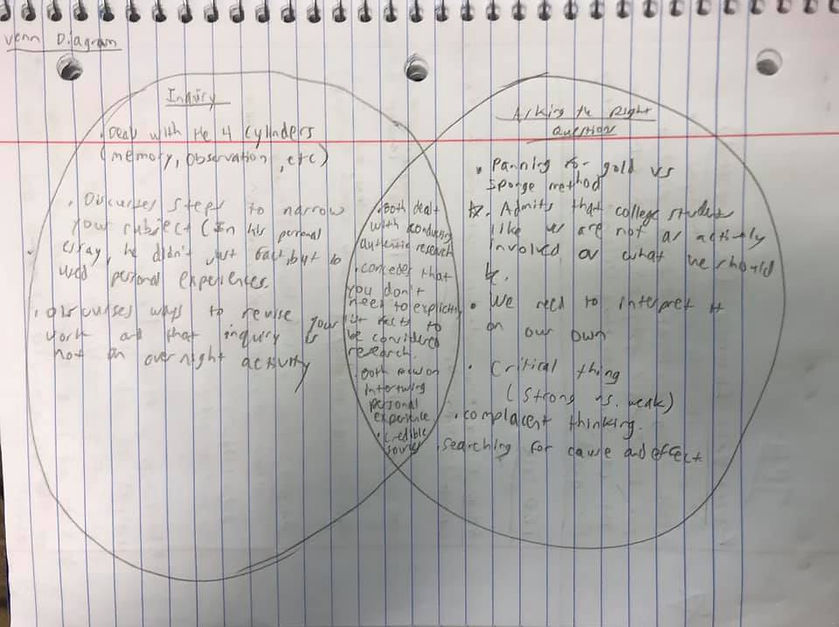 Venn Diagram
Inquiry
. Deal with the 4 Cylinders
(memory, observation, etc)
. Discusses steps to narrow
your subject (In his personal
essay, he didn't just fact, but
used personal experiences.
. Discusses ways to revise your
work and that inquiry is
not an overnight activity
. Both dealt
with conducting
authentic research
. concedes that
you don't
need to explicitly
list facts to
be considered
research.
. Both focus on
intertwing
personal
experience
. credible
sources
Asking the Right
Question
. Panning for gold vs
Sponge method
. Admits that college students
like us are not as actively
involved as what we should
. We need to interpret it
on our own
. Critical thing
(Strong vs. weak)
. complacent thinking.
. searching for cause and effect